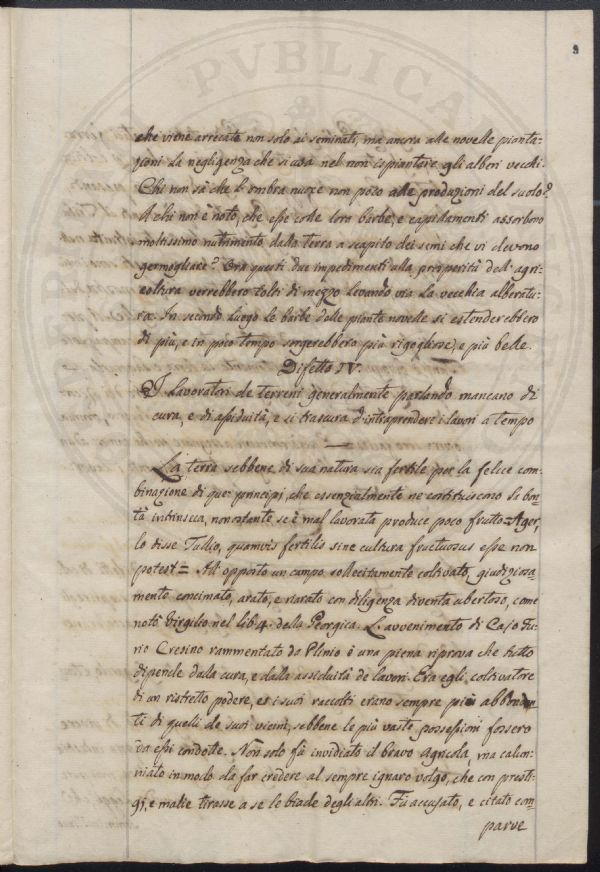 9
che viene arrecato non solo ai seminati, ma ancora alle novelle pianta=
gioni la negligenza che si usa nel non ispiantare gli alberi vecchi.
Chi non sà che l'ombra nuoce non poco alle produzioni del suolo?
A chi non è noto, che esse colle loro barbe, e capidamenti assorbono
moltissimo nutrimento dalla terra a scapito dei semi che vi devono
germogliare? Ora questi due impedimenti alla prosperità dell'agri=
coltura verrebbero tolti di mezzo levando via la vecchia alberatu=
ra. In secondo luogo le barbe delle piante novelle si estenderebbero
di più, e in poco tempo sorgerebbero più rigogliose, e più belle.
Difetto IV.
I lavoratori de terreni generalmente parlando mancano di
cura, e di assiduità, e si trascura d'intraprendere i lavori a tempo
La terra sebbene di sua natura sia fertile per la felice com=
binazione di que' principj, che essenzialmente ne costituiscono la bon=
tà intrinseca, nonostante se è mal lavorata produce poco frutto = Ager,
lo disse Tullio, quamvis fertilis sine cultura fructuosus esse non
potest = All'opposto un campo sollecitamente coltivato, giudiziosa=
mente concimato, arato, e riarato con diligenza diventa ubertoso, come
notò Virgilio nel lib: 4. della Georgica. L'avvenimento di Cajo Fu=
rio Cresino rammentato da Plinio è una piena riprova che tutto
dipende dalla cura, e dalla assiduità de lavori. Era egli coltivatore
di un ristretto podere, et i suoi raccolti erano sempre più abbondan=
ti di quelli de suoi vicini, sebbene le più vaste possessioni fossero
da essi condotte. Non solo fù invidiato il bravo Agricola, ma calun=
niato in modo da far credere al sempre ignaro volgo, che con presti=
gj, e malie tirasse a se le biade degli altri. Fù accusato, e citato com=
parve
PVBLICA